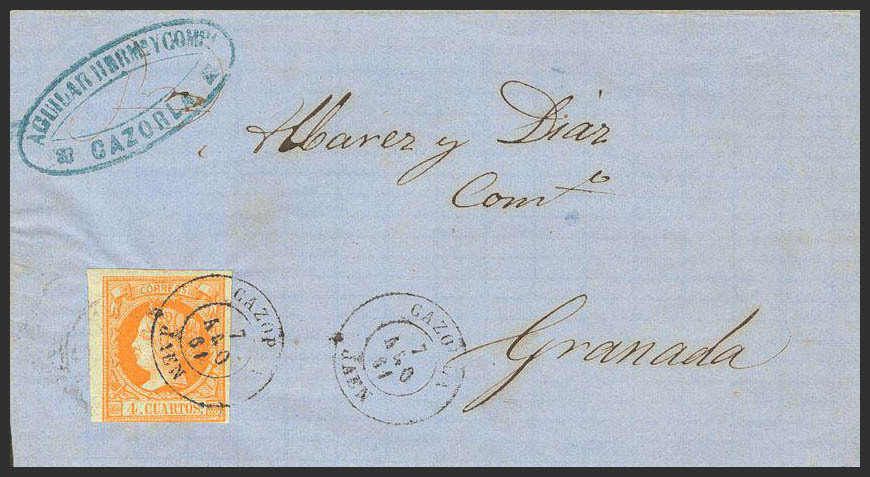 AGUILAR HERM. Y COMP.
CAZORLA
Alvarez y Diáz
Com.to
Granada
CORREOS
4 CUARTOS
CAZOR
7
AGO
61
JAEN
CAZORLA
7
AGO
61
JAEN